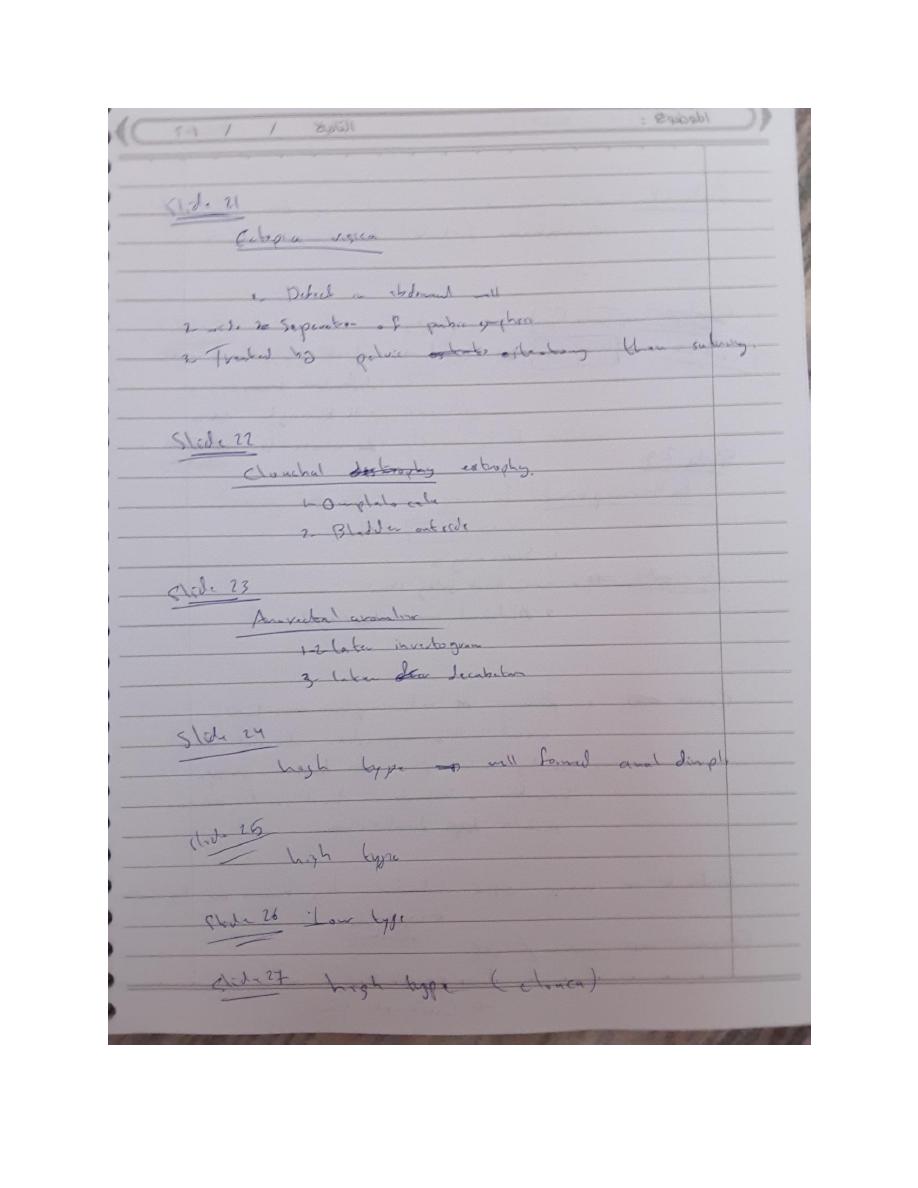 Slide 21
Ectopia vesica
1- Defect in abdominal wall
2- wide Separation of pubic symphsis
3- Treated by pelvic osteotomy then suturing.
Slide 22
Clouchal estrophy.
1- Omphalocele
2- Bladder outside
Slide 23
Anorectal anomalies
1-2 later invertogram
3- later decubitus
Slide 24
high type → well formed anal dimple
Slide 25
high type
Slide 26 Low type
Slide 27 high type (cloaca)